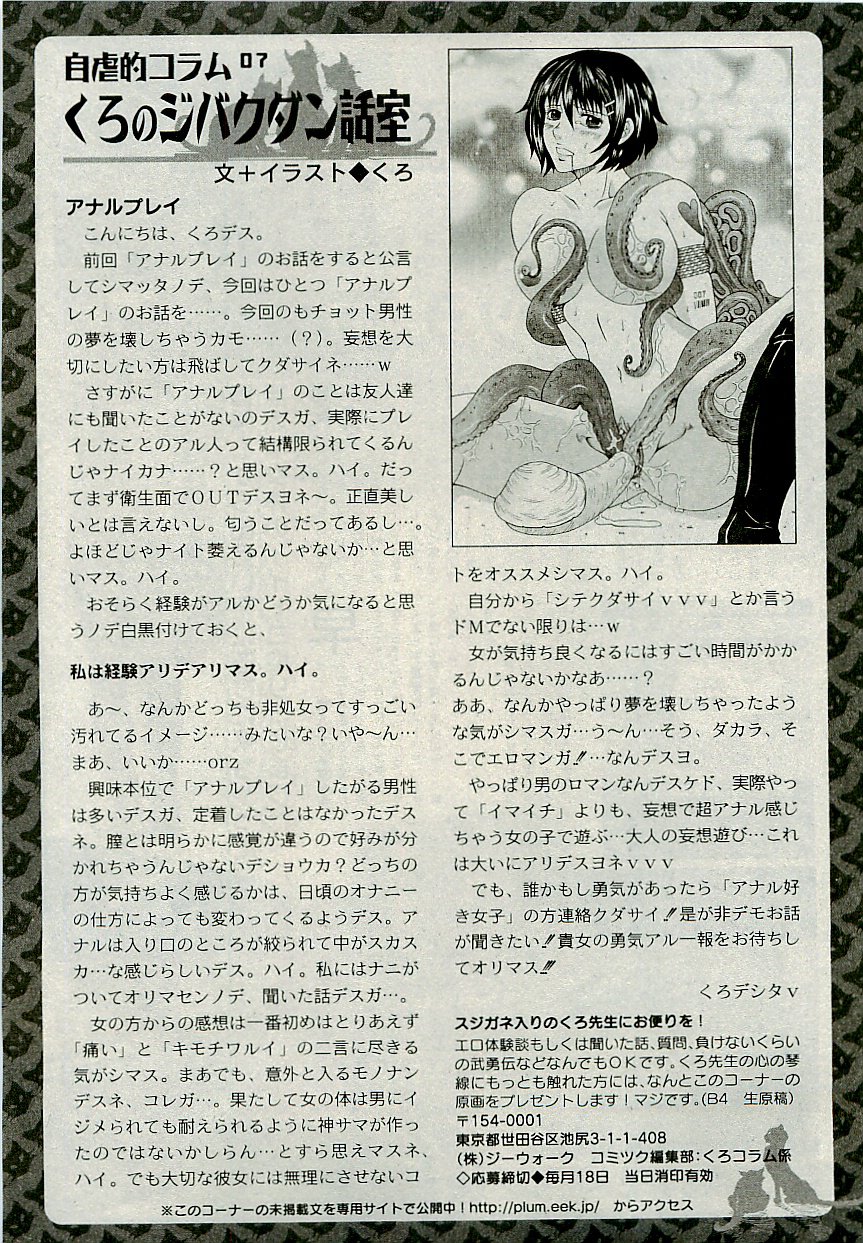 自虐的コラム 07
くろのジバクダン話室
文＋イラスト◆くろ
アナルプレイ
こんにちは、くろデス。
前回「アナルプレイ」のお話をすると公言
してシマッタノデ、今回はひとつ「アナルプ
レイ」のお話を……。今回のもチョット男性
の夢を壊しちゃうカモ……（？）。妄想を大
切にしたい方は飛ばしてクダサイネ……w
さすがに「アナルプレイ」のことは友人達
にも聞いたことがないのデスガ、実際にプレ
イしたことのアル人って結構限られてくるん
じゃナイカナ……？と思いマス。ハイ。だっ
てまず衛生面でＯＵＴデスヨネ〜。正直美し
いとは言えないし。匂うことだってあるし…。
よほどじゃナイト萎えるんじゃないか…と思
いマス。ハイ。
おそらく経験がアルかどうか気になると思
うノデ白黒付けておくと、
私は経験アリデアリマス。ハイ。
あ〜、なんかどっちも非処女ってすっごい
汚れてるイメージ……みたいな？いや〜ん…
まあ、いいか……orz
興味本位で「アナルプレイ」したがる男性
は多いデスガ、定着したことはなかったデス
ネ。膣とは明らかに感覚が違うので好みが分
かれちゃうんじゃないデショウカ？どっちの
方が気持ちよく感じるかは、日頃のオナニー
の仕方によっても変わってくるようデス。ア
ナルは入り口のところが絞られて中がスカス
カ…な感じらしいデス。ハイ。私にはナニが
ついてオリマセンノデ、聞いた話デスガ…。
女の方からの感想は一番初めはとりあえず
「痛い」と「キモチワルイ」の二言に尽きる
気がシマス。まあでも、意外と入るモノナン
デスネ、コレガ…。果たして女の体は男にイ
ジメられても耐えられるように神サマが作っ
たのではないかしらん…とすら思えマスネ、
ハイ。でも大切な彼女には無理にさせないコ
007
トをオススメシマス。ハイ。
自分から「シテクダサイｖｖｖ」とか言う
ドＭでない限りは…w
女が気持ち良くなるにはすごい時間がかか
るんじゃないかなあ……？
ああ、なんかやっぱり夢を壊しちゃったよう
な気がシマスガ…う〜ん…そう、ダカラ、そ
こでエロマンガ!!…なんデスヨ。
やっぱり男のロマンなんデスケド、実際やっ
て「イマイチ」よりも、妄想で超アナル感じ
ちゃう女の子で遊ぶ…大人の妄想遊び…これ
は大いにアリデスヨネｖｖｖ
でも、誰かもし勇気があったら「アナル好
き女子」の方連絡クダサイ!!是が非デモお話
が聞きたい!!貴女の勇気アル一報をお待ちし
てオリマス!!!
くろデシタｖ
スジガネ入りのくろ先生にお便りを！
エロ体験談もしくは聞いた話、質問、負けないくらい
の武勇伝などなんでもＯＫです。くろ先生の心の琴
線にもっとも触れた方には、なんとこのコーナーの
原画をプレゼントします！マジです。（B4　生原稿）
〒154-0001
東京都世田谷区池尻3-1-1-408
（株）ジーウォーク　コミック編集部：くろコラム係
◇応募締切◆毎月18日　当日消印有効
※このコーナーの未掲載文を専用サイトで公開中！http://plum.eek.jp/　からアクセス